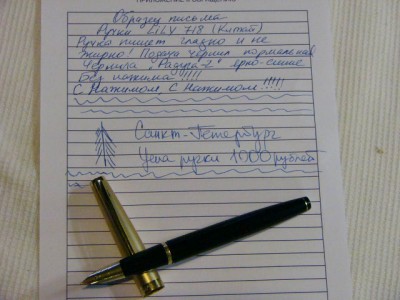 ПРИЛОЖЕНИЕ К ОБРАЩЕНИЮ
Образец письма
Ручка LiLY 718 (Китай)
Ручка пишет гладко и не
жирно! Подача чернил нормальная
Чернила "Радуга-2" ярко-синие
Без нажима!!!!!
С Нажимом, С Нажимом!!!!!
Санкт-Петербург
Цена ручки 1000 рублей